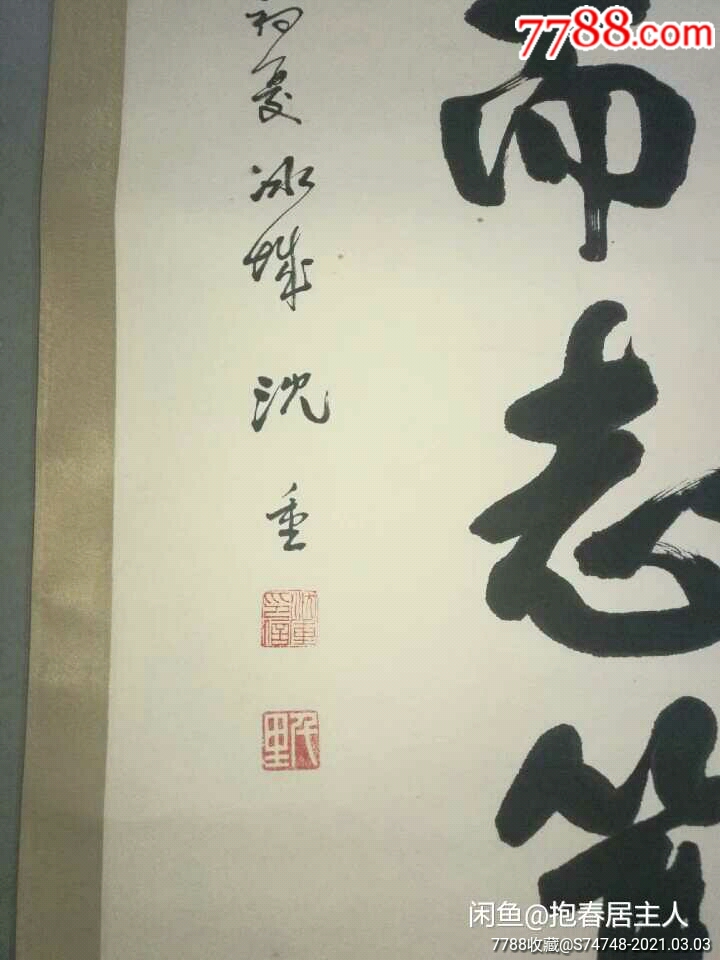 7788.com
而志
初夏冰城 沈重
沈重印信
闲鱼@抱春居主人
7788收藏@S74748-2021.03.03